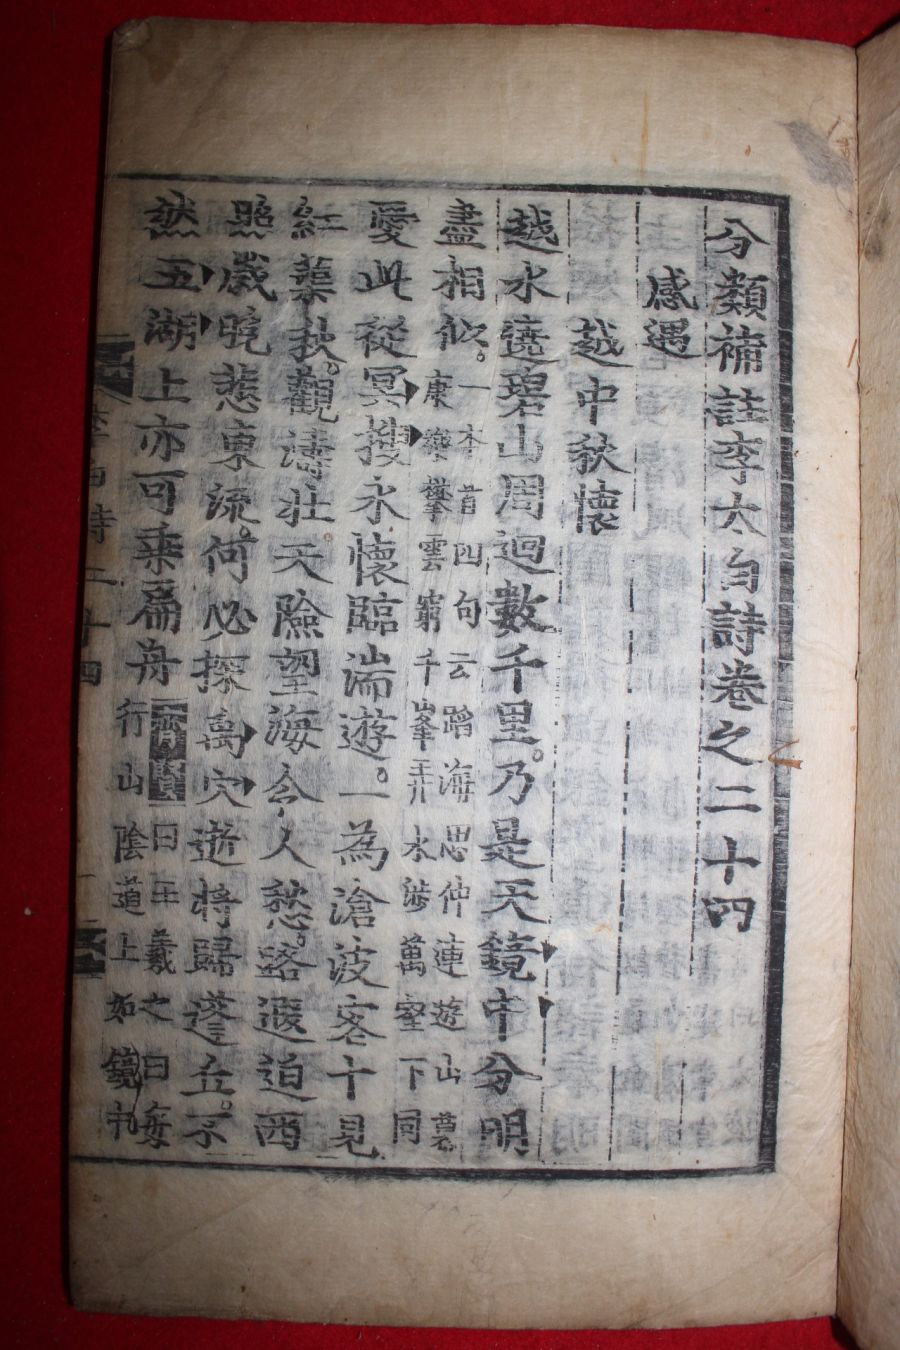 分類補註李太白詩卷之二十四
感遇
越中秋懷
越水遶碧山周迴數千里。乃是天鏡中分明
盡相似。一本首四句云蹈海思仲連遊山慕
康樂攀雲窮千峯弄水涉萬壑下同
愛此從冥搜永懷臨湍遊。一為滄波客十見
紅蕖秋。觀濤壯天險望海令人愁。路遐迫西
照歲晚悲東流。何必探禹穴逝將歸蓬丘。不
然五湖上亦可乘扁舟齊賢曰王羲之曰每
行山陰道上如鏡
李白詩二十四 一